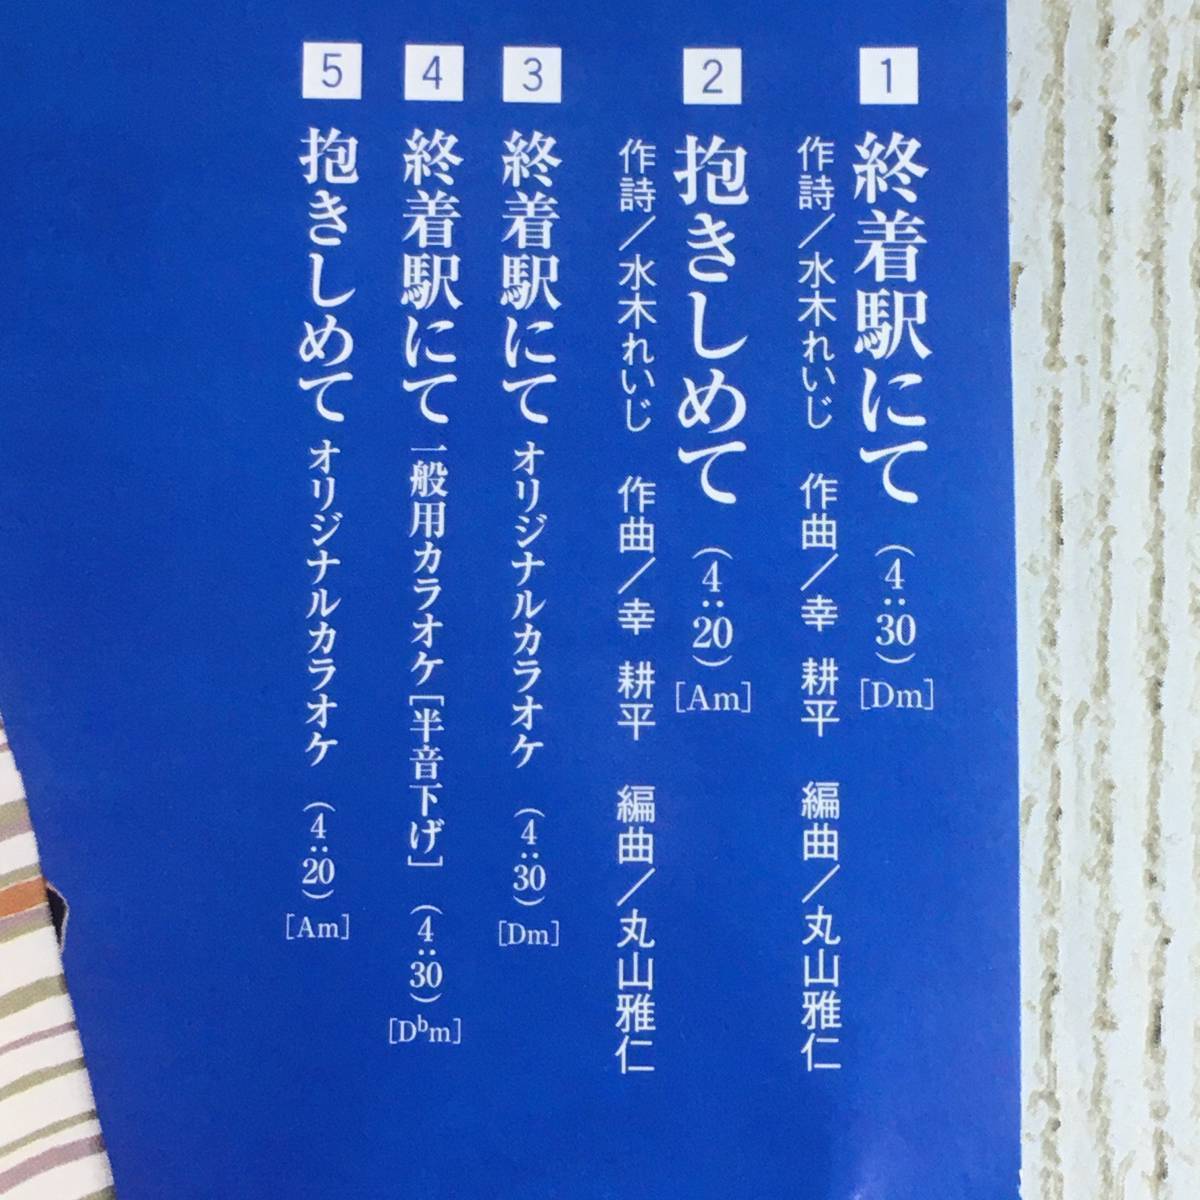 1 終着駅にて (4:30) [Dm]
作詩/水木れいじ 作曲/幸 耕平 編曲/丸山雅仁
2 抱きしめて (4:20) [Am]
作詩/水木れいじ 作曲/幸 耕平 編曲/丸山雅仁
3 終着駅にて オリジナルカラオケ (4:30) [Dm]
4 終着駅にて 一般用カラオケ[半音下げ] (4:30) [D♭m]
5 抱きしめて オリジナルカラオケ (4:20) [Am]